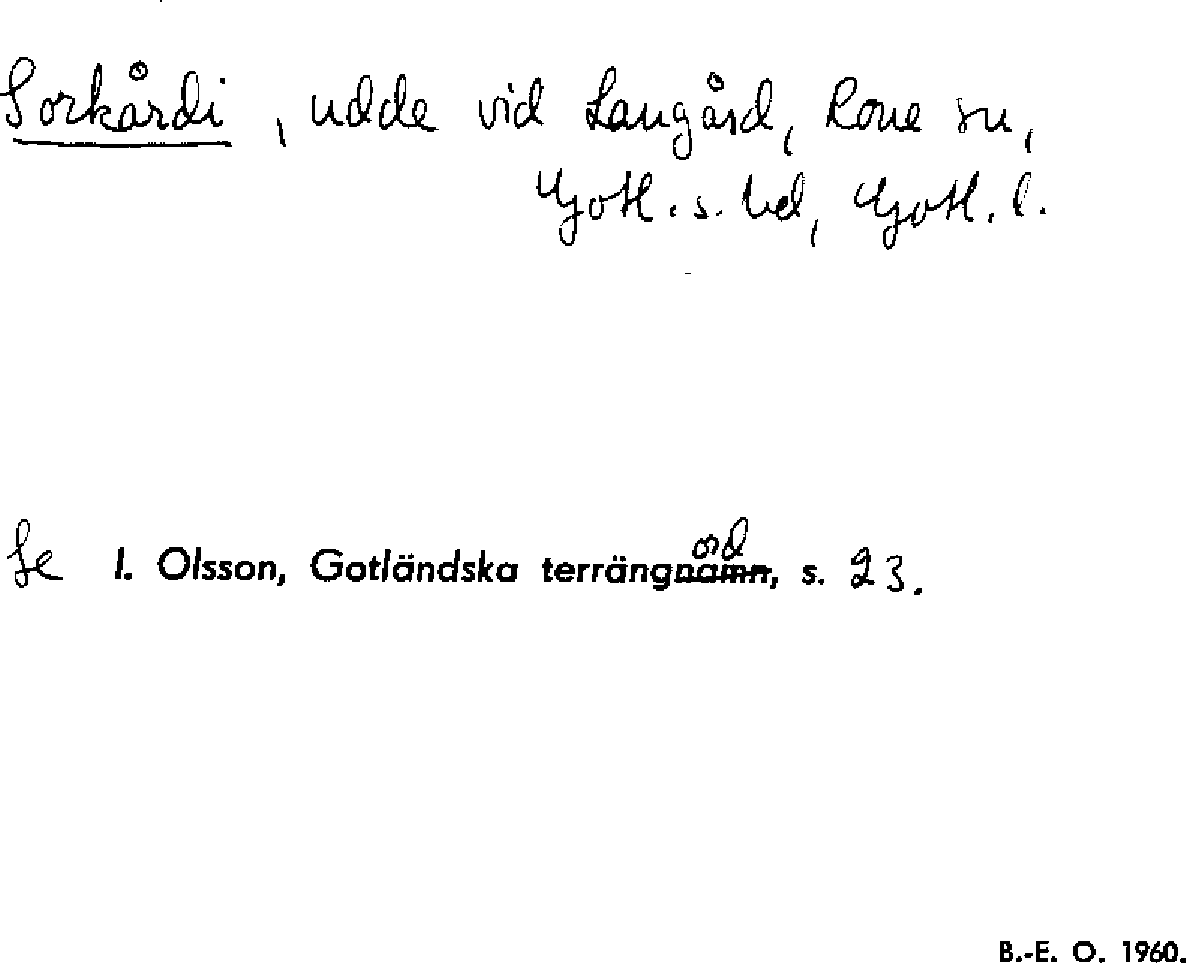 Sorkårdi, udde vid Laugård, Rone sn,
Gotl. s. hd, Gotl. l.
Se I. Olsson, Gotländska terrängnamn ord, s. 23.
B.-E. O. 1960.